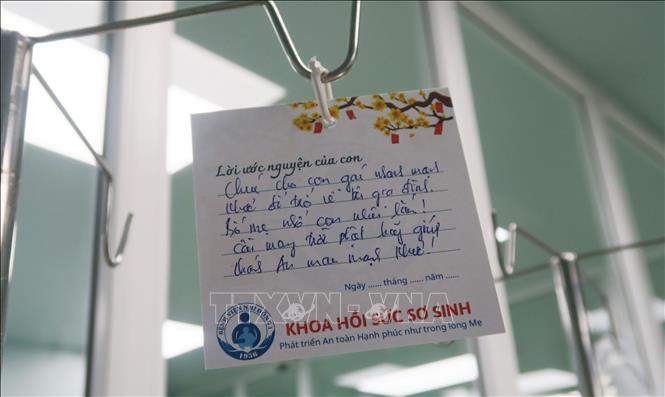 Lời ước nguyện của con
Chúc cho con gái nhanh mạnh
khoẻ để trở về với gia đình.
Bố mẹ nhớ con nhiều lắm!
Cầu mong trời phật hãy giúp
An mau mạnh khoẻ!
Ngày ...... tháng ...... năm ......
TTXVN-VNA
BỆNH VIỆN NHI
1956
KHOA HỒI SỨC SƠ SINH
Phát triển An toàn Hạnh phúc như trong lòng Mẹ